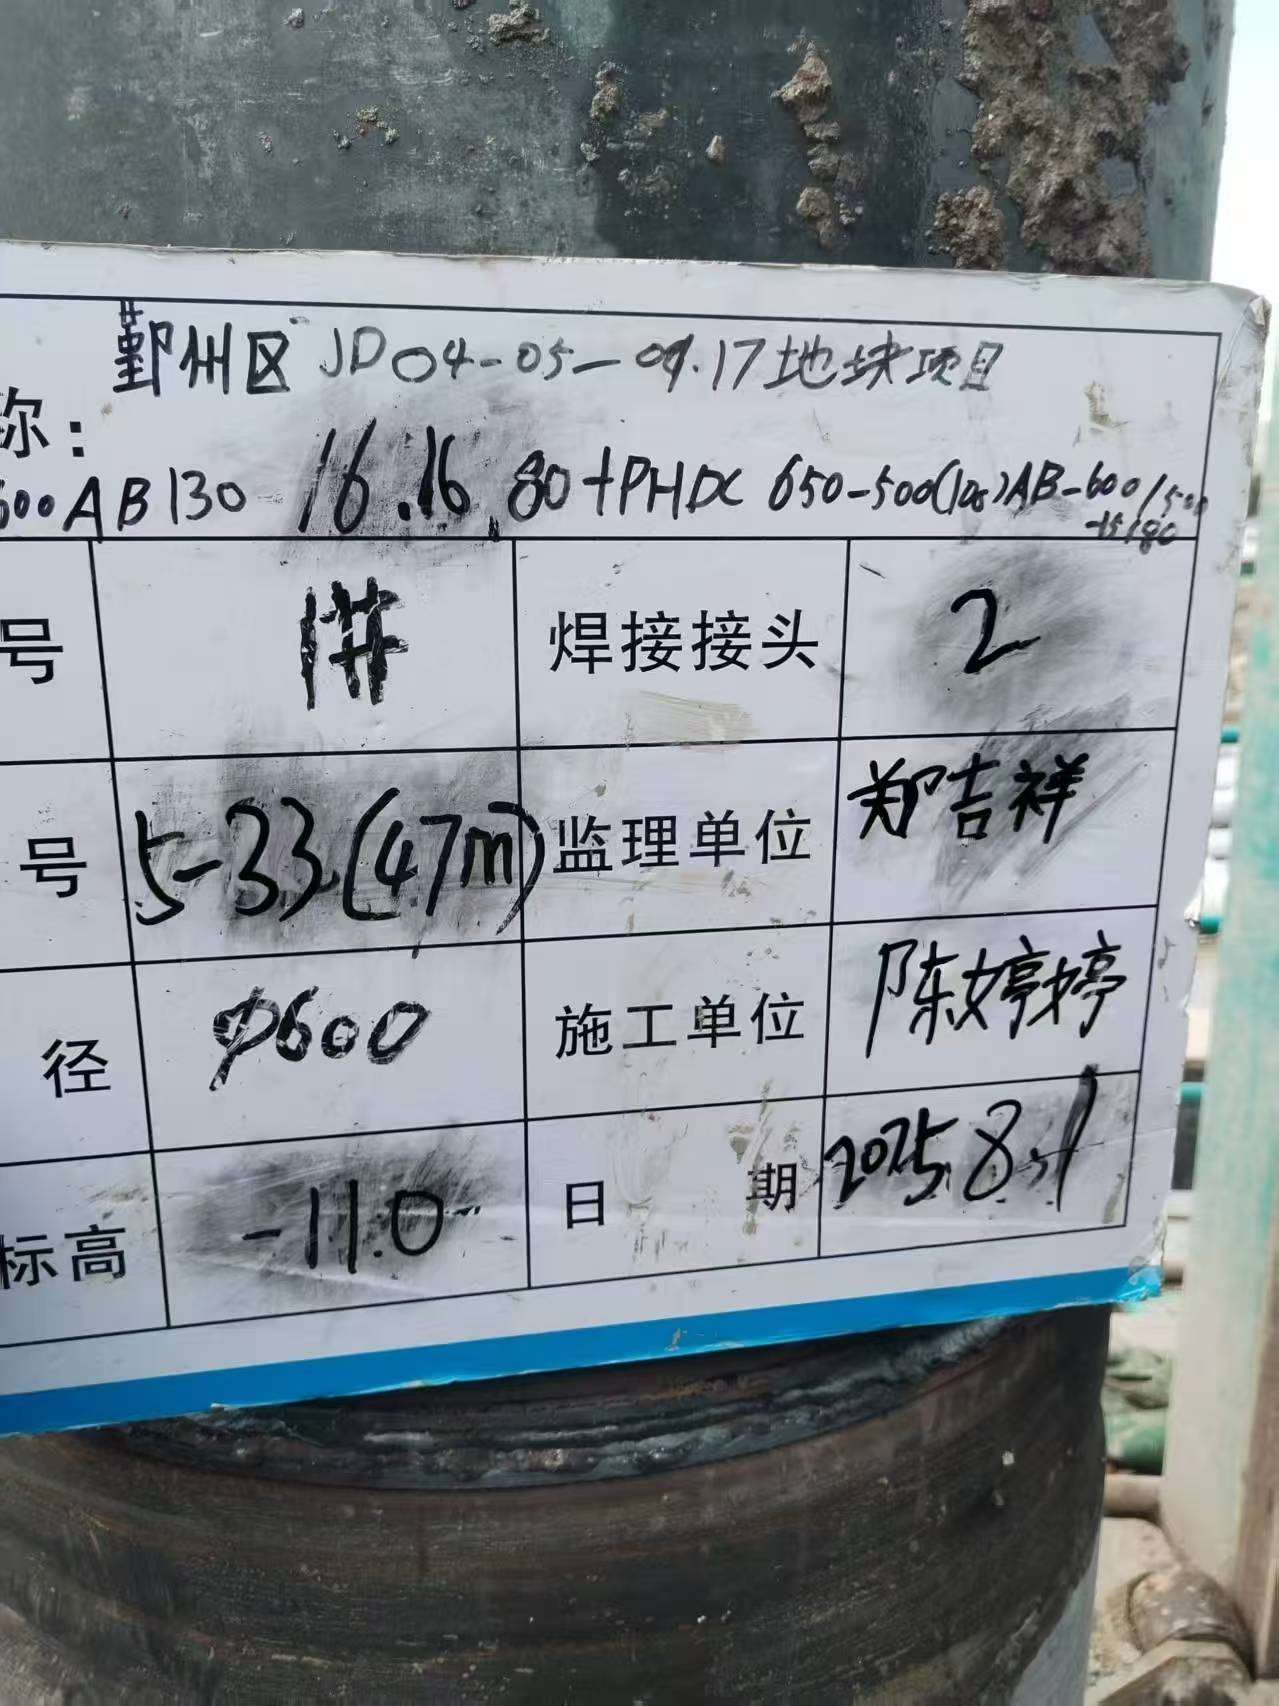 鄞州区 JD04-05-09.17地块项目
称:
600AB130 16.16.80+PHDC 650-500(125)AB-600/500
-15/80
号 1# 焊接接头 2
号 5-33(47m) 监理单位 郑吉祥
径 Φ600 施工单位 陈婷婷
标高 -11.0 日期 2025.8.1